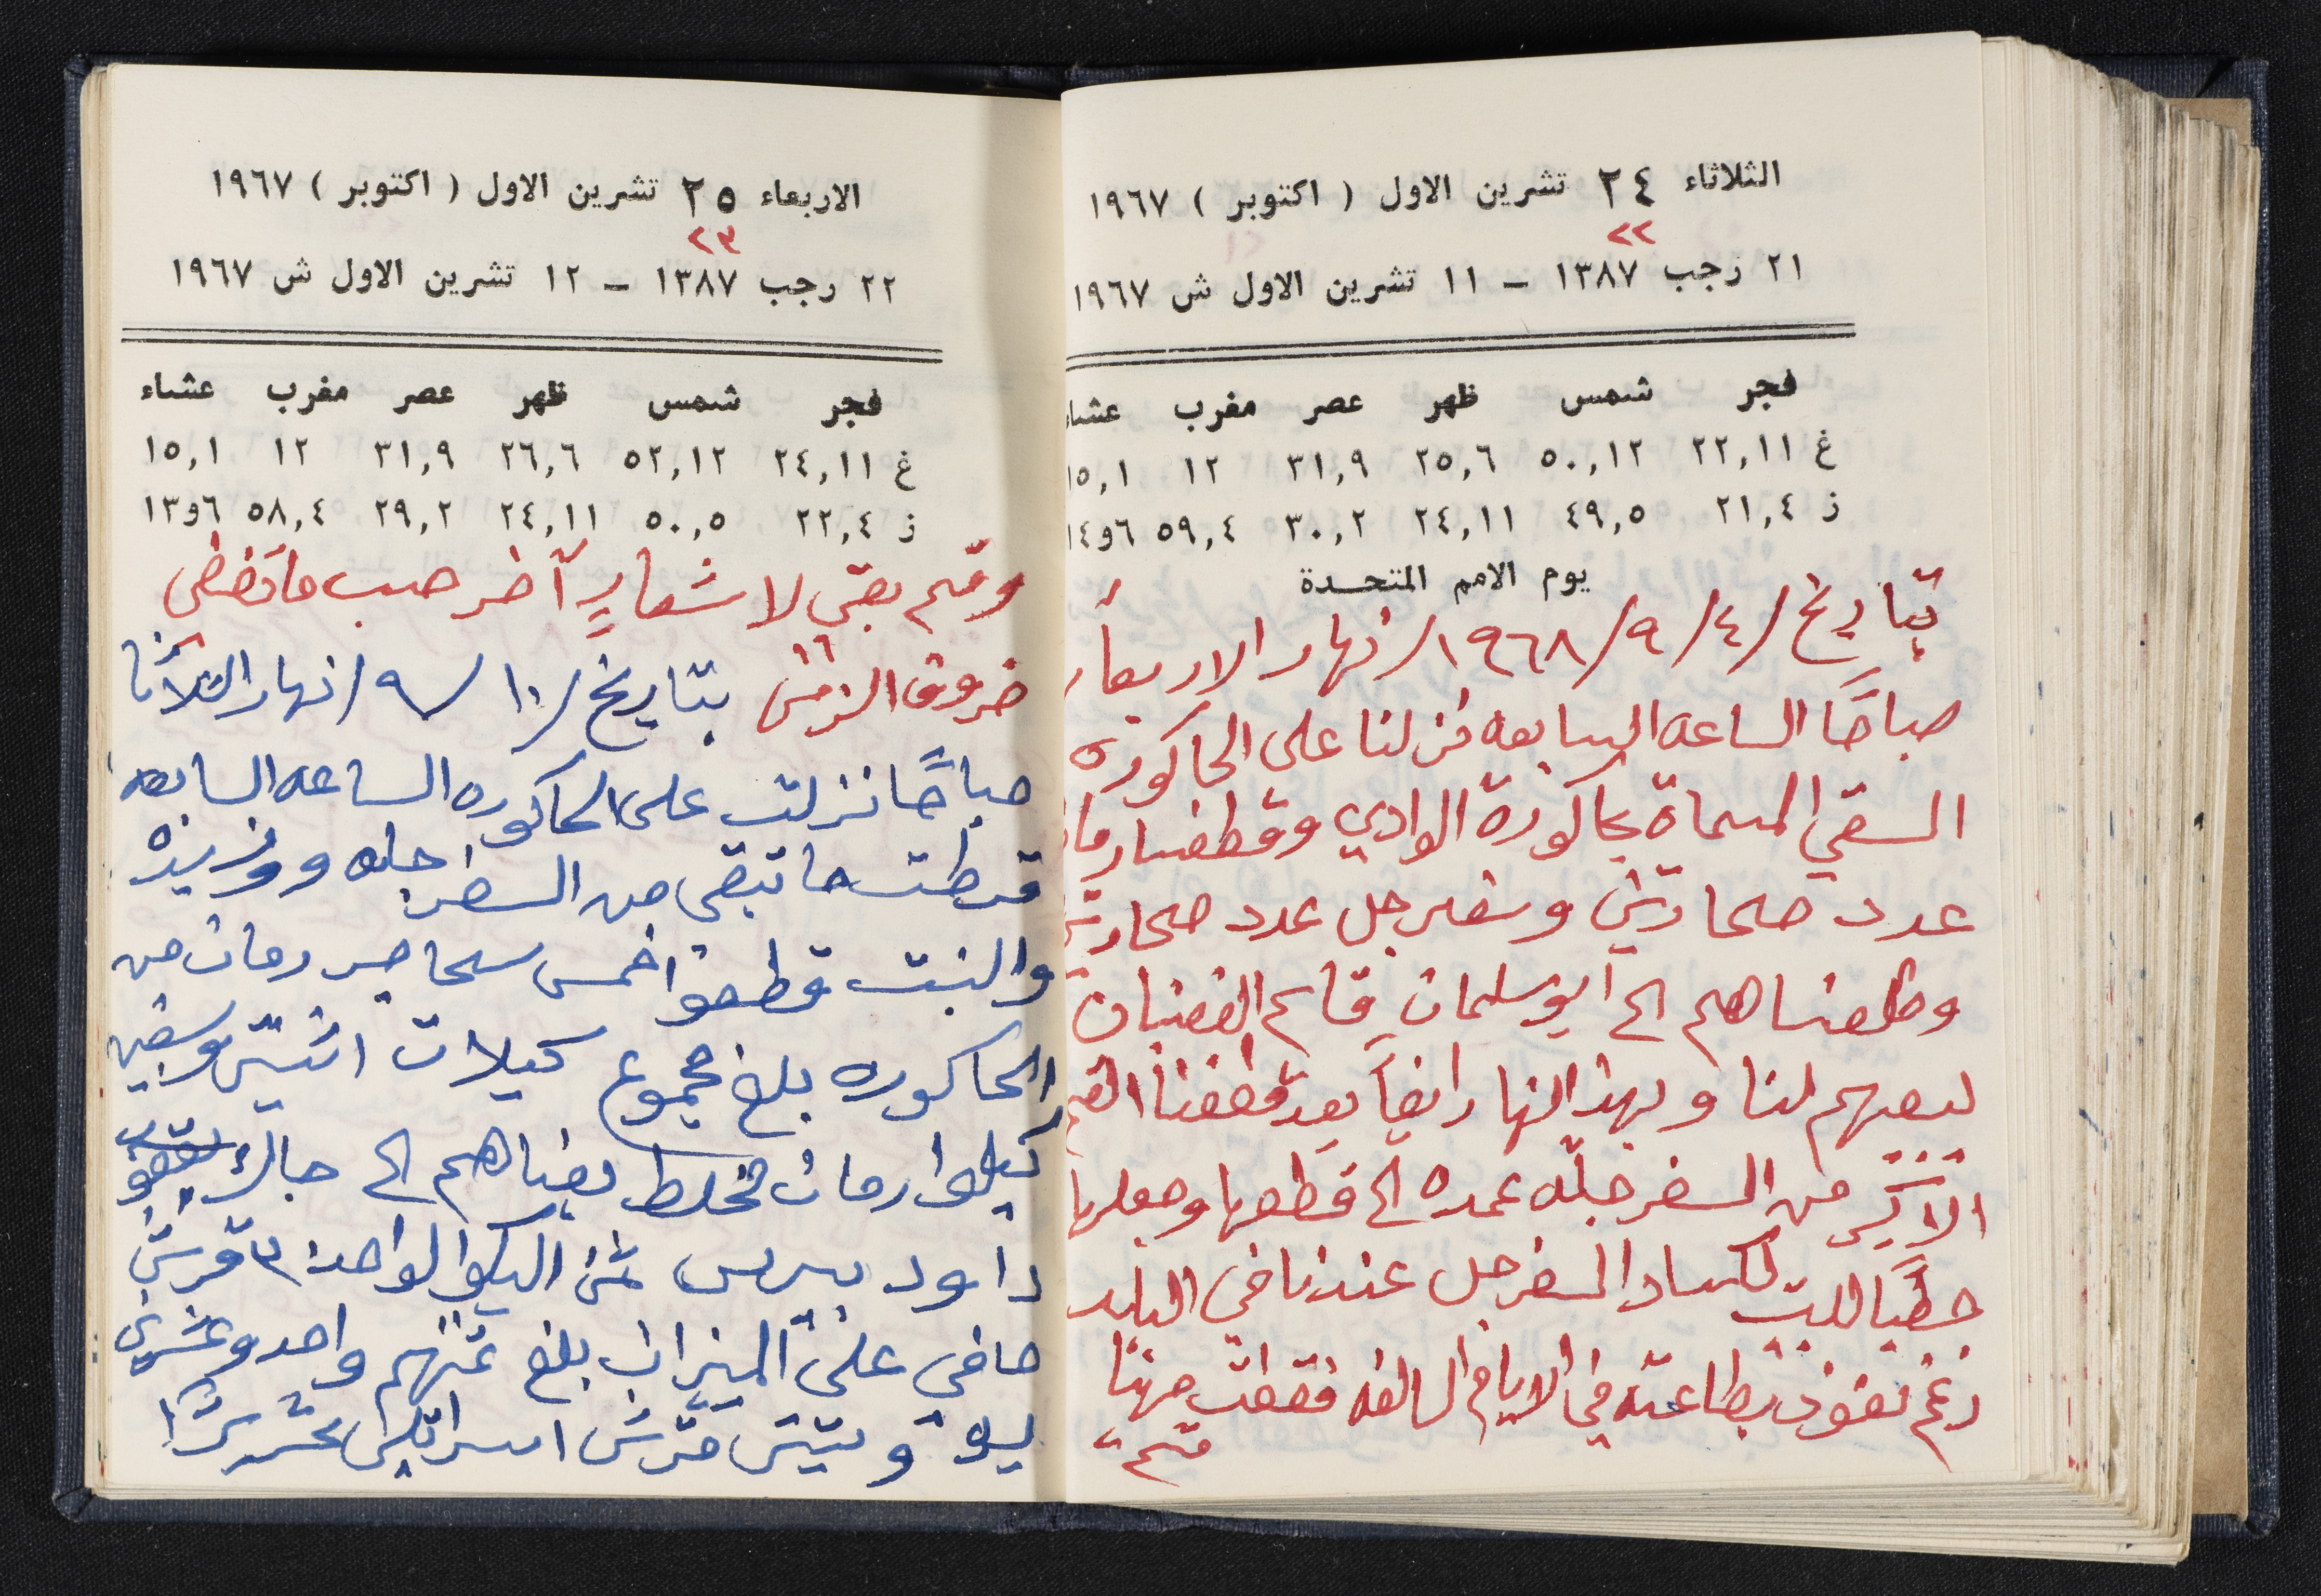 الثلاثاء ٢٤ تشرين الاول ( اكتوبر ) ١٩٦٧
٢٢
٢١ رجب ١٣٨٧ – ١١ تشرين الاول ش ١٩٦٧
فجر شمس ظهر عصر مغرب عشاء
غ ٢٢,١١ ٥٠,١٢ ٢٥,٦ ٣١,٩ ١٢ ١٥,١
ز ٢١,٤ ٤٩,٥ ٢٤,١١ ٣٠,٢ ٥٩,٤ ٦و١٤
يوم الامم المتحدة
بتاريخ /٤/ ٩/ ١٩٦٨/ نهار الاربعاء
صباحًا الساعه السابعه نزلنا على الحاكوره
السقي المسماة بحاكورة الوادي وقطفنا رمان
عدد صحارتين وسفرجل عدد صحارتين
وطلعناهم الى ابو سلمان قاسم الغضبان
لبيعهم لنا وبهذا النهار ايضاً بعد قطفنا القسم
الاكبر من السفرجله عمده الى قطعها وجعلها
حطبًا للبيت لكساد السفرجل عندنا في البلد
رغم نفوذ بضاعته في الايام السالفه فقطعت منها
قسم
الاربعاء ٢٥ تشرين الاول ( اكتوبر ) ١٩٦٧
٢٣
٢٢ رجب ١٣٨٧ – ١٢ تشرين الاول ش ١٩٦٧
فجر شمس ظهر عصر مغرب عشاء
غ ٢٤,١١ ٥٢,١٢ ٢٦,٦ ٣١,٩ ١٢ ١٥,١
ز ٢٢,٤ ٥٠,٥ ٢٤,١١ ٢٩,٢ ٥٨,٤ ٦و١٣
وقسم بقي لاشعارٍ آخر حسب ما تقضي
ظروف الزمن بتاريخ /١٠ /٩ / نهار الثلاثا
صباحًا نزلت على الحاكوره الساعه السابعه
قطعت ما تبقى من السفرجله و وزيده
والبنت قطعوا خمس سحاحير رمان من
الحاكوره بلغ مجموع كيلات اثنين وسبعين
كيلوا رمان مخلط بعناهم الى جاليه
داود بيرس ثمن الكيلو الواحد ٣٠ قرش
صافي على الميزان بلغ ثمنهم واحد وعشرين
ليره وستين قرش اسرائيلي تحريرًا